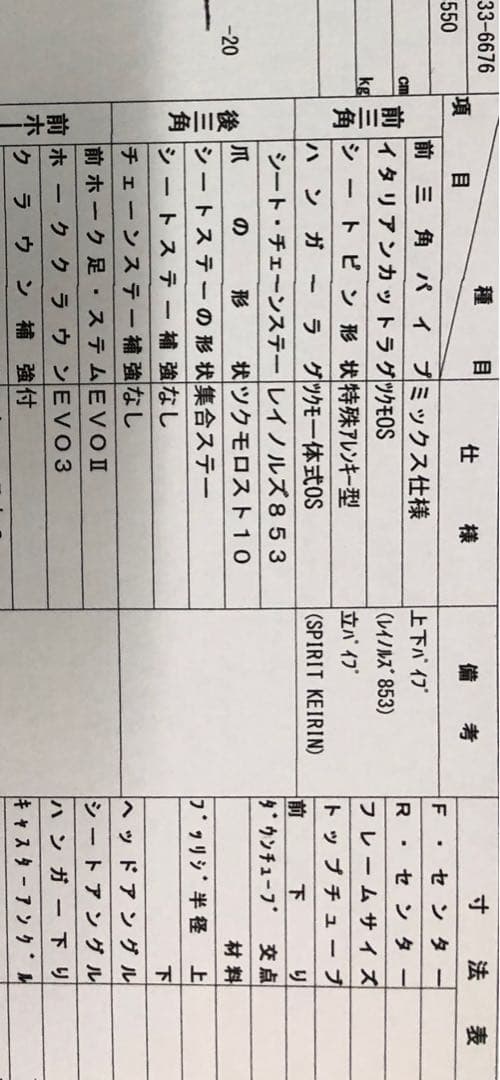 33-6676
550
cm
kg
-20
項目 種目 仕様 備考 寸法表
前三角 前三角パイプ ミックス仕様 上下パイプ F・センター
イタリアンカットラグ ツクモOS (レイノルズ853) R・センター
シートピン形状 特殊アレンキー型 立パイプ フレームサイズ
ハンガーラグ ツクモ一体式OS (SPIRIT KEIRIN) トップチューブ
後三角 シート・チェーンステー レイノルズ853 前下り
爪の形状 ツクモロスト10 ダウンチューブ 交点
シートステーの形状 集合ステー 材料
シートステー補強 なし ブッリジ半径 上
チェーンステー補強 なし 下
前ホー 前ホーク足・ステム EVOⅡ ヘッドアングル
ホーククラウン EVO3 シートアングル
クラウン補強 付 ハンガー下り
キャスターアングル